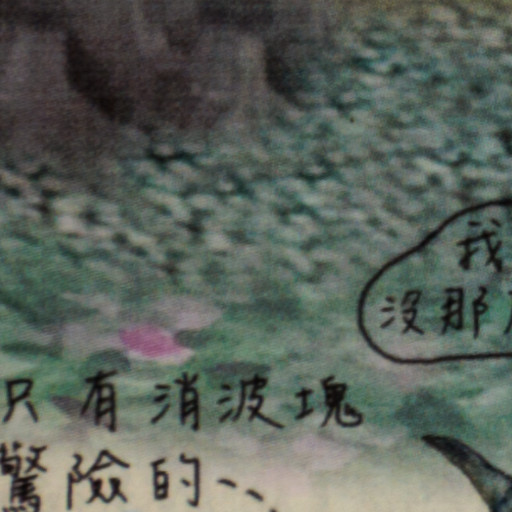 我
沒那
只有消波塊
驚險的、、